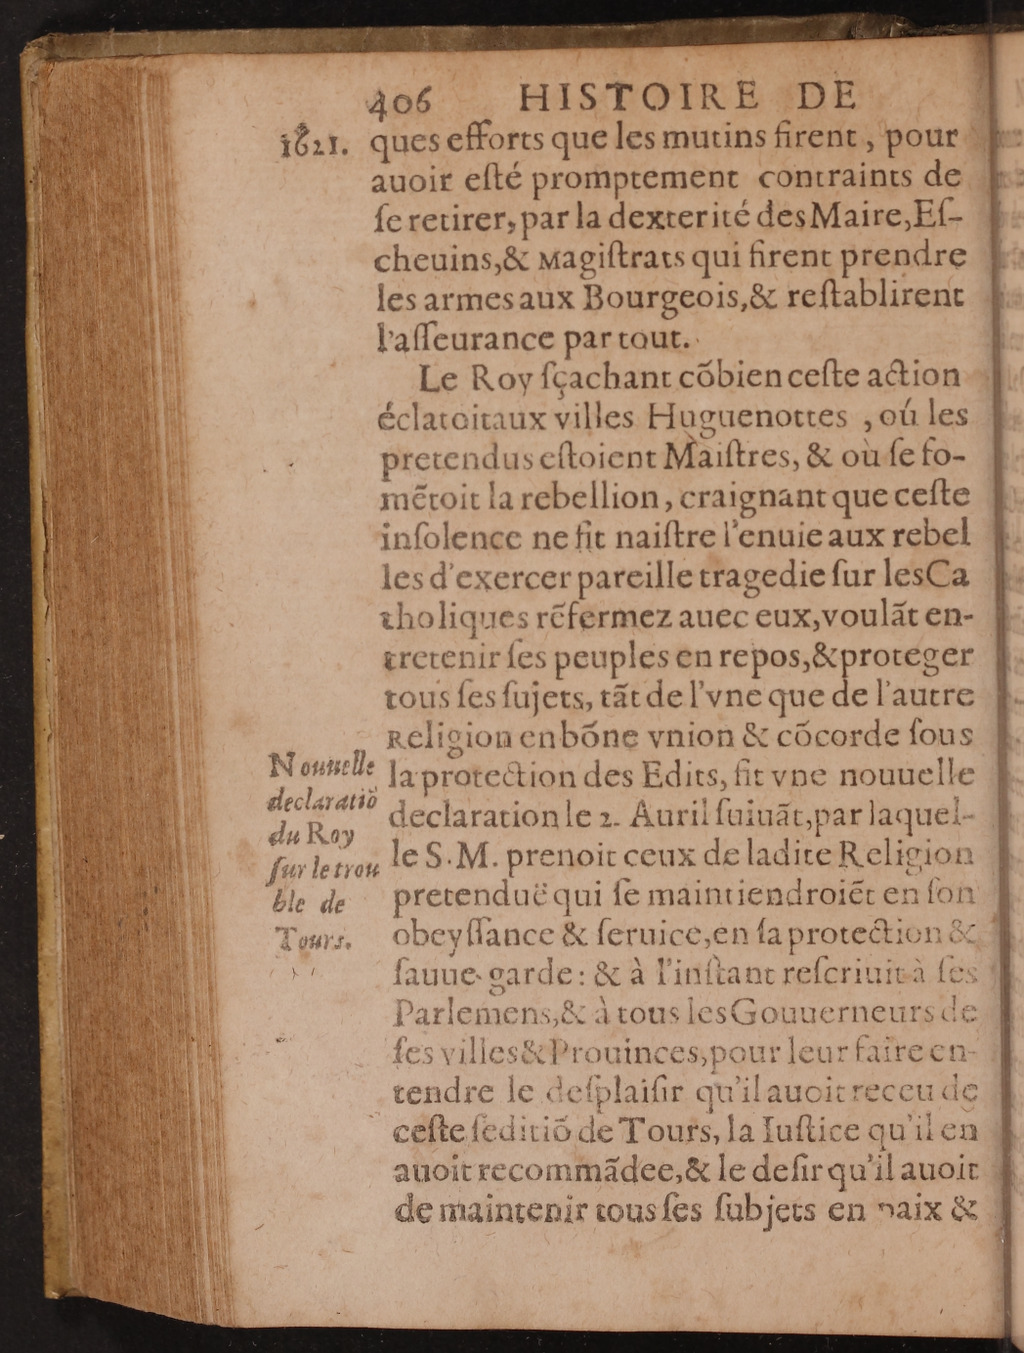 406 HISTOIRE DE
1621. ques efforts que les mutins firent, pour
auoir eſté promptement contraints de
ſe retirer, par la dexterité des Maire, Eſ-
cheuins, & Magiſtrats qui firent prendre
les armes aux Bourgeois, & reſtablirent
l'aſſeurance par tout.
Le Roy ſçachant cõbien ceſte action
éclatoit aux villes Huguenottes, oú les
pretendus eſtoient Maiſtres, & où ſe fo-
mẽtoit la rebellion, craignant que ceſte
inſolence ne fit naiſtre l'enuie aux rebel
les d'exercer pareille tragedie ſur les Ca
tholiques rẽfermez auec eux, voulãt en-
tretenir ſes peuples en repos, & proteger
tous ſes ſujets, tãt de l'vne que de l'autre
Religion en bõne vnion & cõcorde ſous
la protection des Edits, fit vne nouuelle
declaration le 2. Auril ſuiuãt, par laquel-
le S. M. prenoit ceux de ladite Religion
pretenduë qui ſe maintiendroiẽt en ſon
obeyſſance & ſeruice, en ſa protection &
ſauue-garde: & à l'inſtant reſcriuit à ſes
Parlemens, & à tous les Gouuerneurs de
ſes villes & Prouinces, pour leur faire en-
tendre le deſplaiſir qu'il auoit receu de
ceſte ſeditiõ de Tours, la Iuſtice qu'il en
auoit recommãdee, & le deſir qu'il auoit
de maintenir tous ſes ſubjets en paix &
Nouuelle
declaratiõ
du Roy
ſur le trou
ble de
Tours.